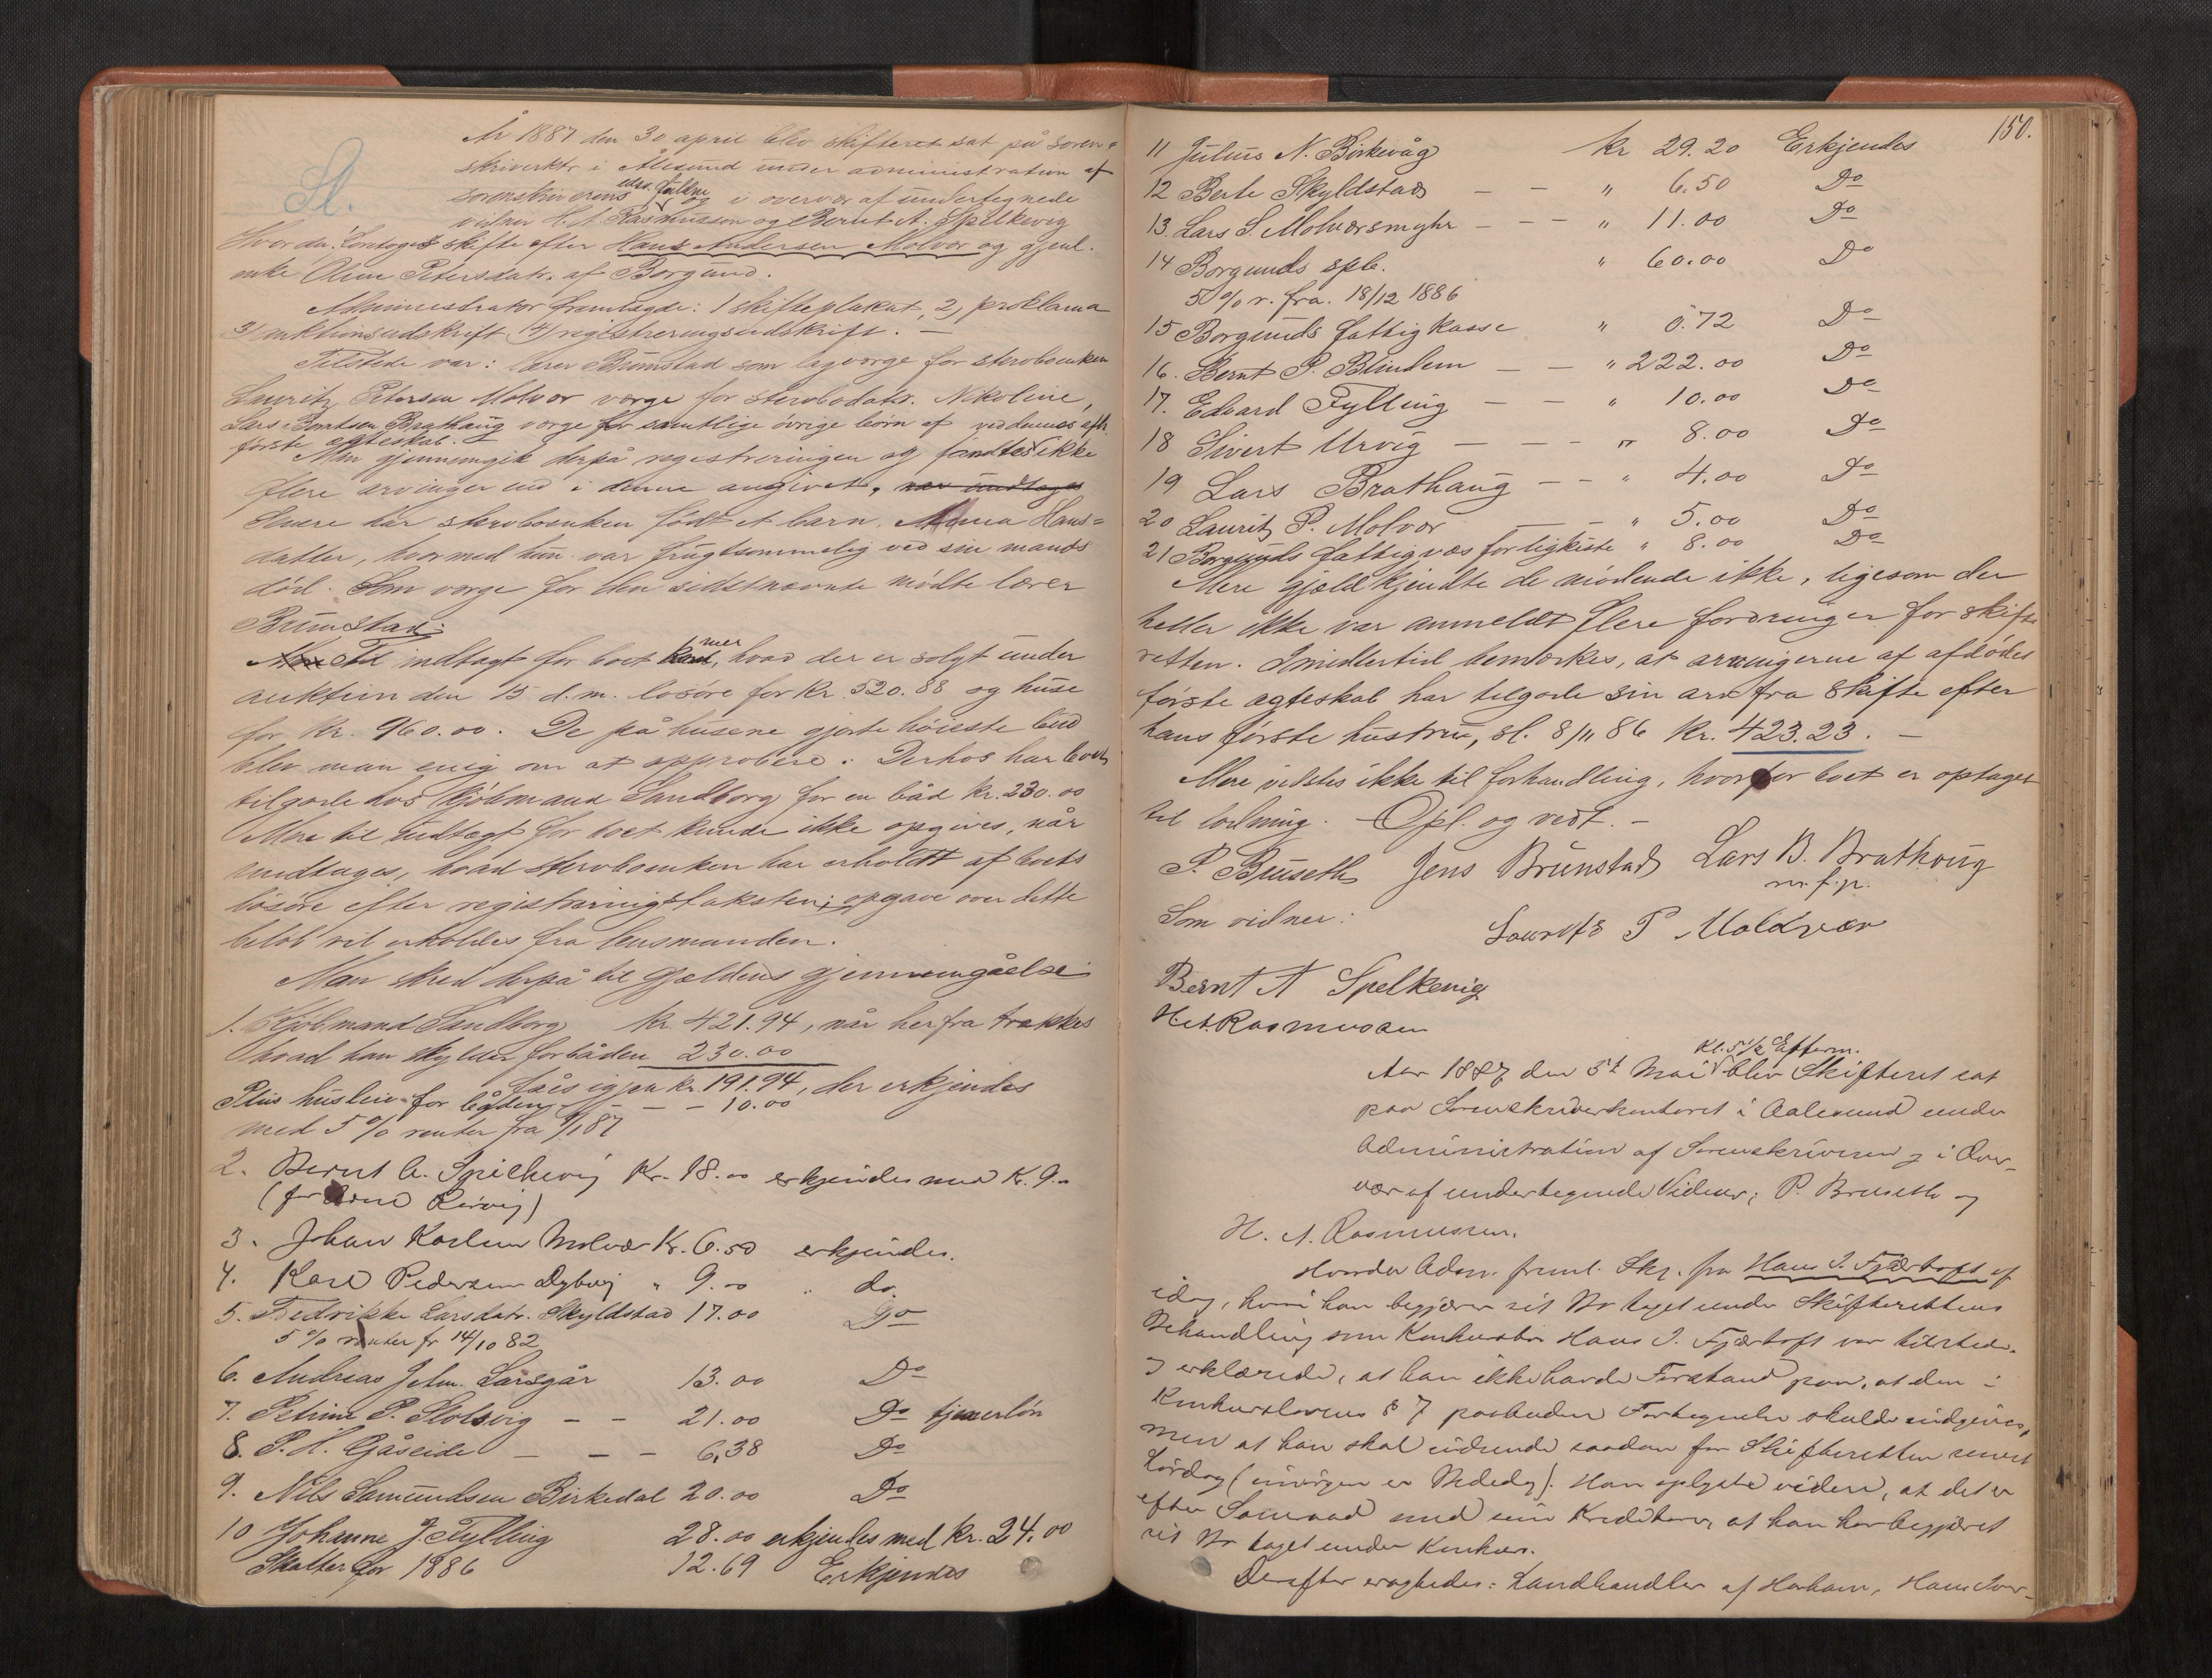 År 1887 den 30 april blev skifteret sat på soren-
skriverktr i Ålesund under administration af
sorenskriverens edsv. fuldm. og i overvær af undertegnede
vidner H. A. Rasmussen og Bernt A. Spilkevig
Hvorda: foretoges skifte efter Hans Andersen Molvær og gjenl.
enke Oline Petersdatr. af Borgund.
Administrator fremlagde: 1 skifteplakat, 2, proklama
3) auktionsudskrift 4) registreringsudskrift. —
Tilstede var: lærer Brunstad som lagværge for sterboenken
Laurits Petersen Molvær værge for sterbodatr. Nikoline,
Lars Berntsen Brathaug værge for samtlige övrige börn af ved dennes
förste ægteskab. —
Man gjennemgik derpå registreringen og fandtes ikke
flere arvinger end i denne angivet, når undtages
Senere har sterboenken födt et barn, Anna Hans=
datter, hvormed hun var frugtsommelig ved sin mands
död. Som værge for den sidstnævnte mödte lærer
Brunstad:
Til indtægt for boet kom, hvad der er solgt under
auktion den 15 d.m. lösöre for kr. 520.88 og huse
for kr. 960.00. De på husene gjorte höieste bud
blev man enig om at approbere. Derhos har boet
tilgode hos Kjöbmand Sandborg for en båd kr. 230.00
Mere til indtægt for boet kunde ikke opgives, når
undtages, hvad sterboenken har erholdt af boets
lösöre efter registreringstaksten; opgave over dette
belöb vil erholdes fra lensmanden.
Man skred derpå til gjældens gjennemgåelse
1. Kjöbmand Sandborg kr 421.94, når herfra trækkes
hvad han skylder for båden 230.00
fåes igjen kr. 191.94, der erkjendes
Plus husleie for båden — — 10.00
med 5 % renter fra 1/1 87
2. Bernt A. Spilkevig Kr. 18.00 erkjendes med Kr. 9.00
3. Johan Karlsen Molvær Kr. 6.50 erkjendes.
4. Karl Pedersen Dybvig " 9.00 " do.
5. Fredrikke Larsdatr. Skyldstad 17.00 Do
5 % renter fr 14/10 82
6. Andreas John. Larsgår 13.00 Do
7. Petrine P. Slotsvig — — 21.00 Do tjenerlön
8. P. H. Gåseide — — — 6.38 Do
9. Nils Samundsen Birkedal 20.00 Do
10 Johanne J. Fylling 28.00 erkjendes med kr. 24.00
Skatter for 1886 12.69 Erkjendes
150.
11 Julius N. Birkevåg kr 29.20 Erkjendes
12 Berte Skyldstad — — " 6.50 Do
13. Lars S. Molværsmyhr — — " 11.00 Do
14 Borgunds spb. " 60.00 Do
5 % r. fra. 18/12 1886
15 Borgunds fattigkasse " 0.72 Do
16. Bernt P. Blindem — — " 222.00 Do
17. Edvard Fylling — — " 10.00 Do
18 Sivert Urvig — — — " 8.00 Do
19 Lars Brathaug — — " 4.00 Do
20 Laurits P. Molvær — — " 5.00 Do
21 Borgunds fattigvæs for ligkiste " 8.00 Do
Mere gjæld kjendte de mödende ikke, ligesom der
heller ikke var anmeldt flere fordringer for skifte
retten. Imidlertid bemærkes, at arvingerne af afdödes
förste ægteskab har tilgode sin arv fra skifte efter
hans förste hustru, sl. 8/11 86 kr. 423.23. —
Mere vidstes ikke til forhandling, hvorfor boet er optaget
til lodning. — Opl. og vedt. —
P. Bruseth Jens Brunstad Lars B. Brathoug
m. f. p.
Som vidner:
Lauritz P Moldvær
Bernt A Spelkevig
H.A. Rasmussen
Kl. 5 1/2 Efterm.
Aar 1887 den 5te Mai blev Skifteret sat
paa Sorenskriverkontoret i Aalesund under
Administration af Sorenskriveren og i Over-
vær af undertegnede Vidner: P. Bruseth og
H. A. Rasmussen.
Hvorda Adm. freml. Skr. fra Hans I. Fjærtoft af
idag, hvori han begjærer sit Bo taget under Skifterettens
Behandling som Konkursbo. Hans I. Fjærtoft var tilstede.
og erklærede, at han ikke havde Forstand paa, at den i
Konkurslovens § 7 paabudne Fortegnelse skulde indgives,
men at han skal indsende saadan for Skifteretten senest
Lördag (imorgen er Bededag). Han oplyste videre, at det er
efter Samraad med sine Kreditorer, at han har begjæret
sit Bo taget under Konkurs.
Derefter eragtedes: Landhandler af Harham, Hans Iver-